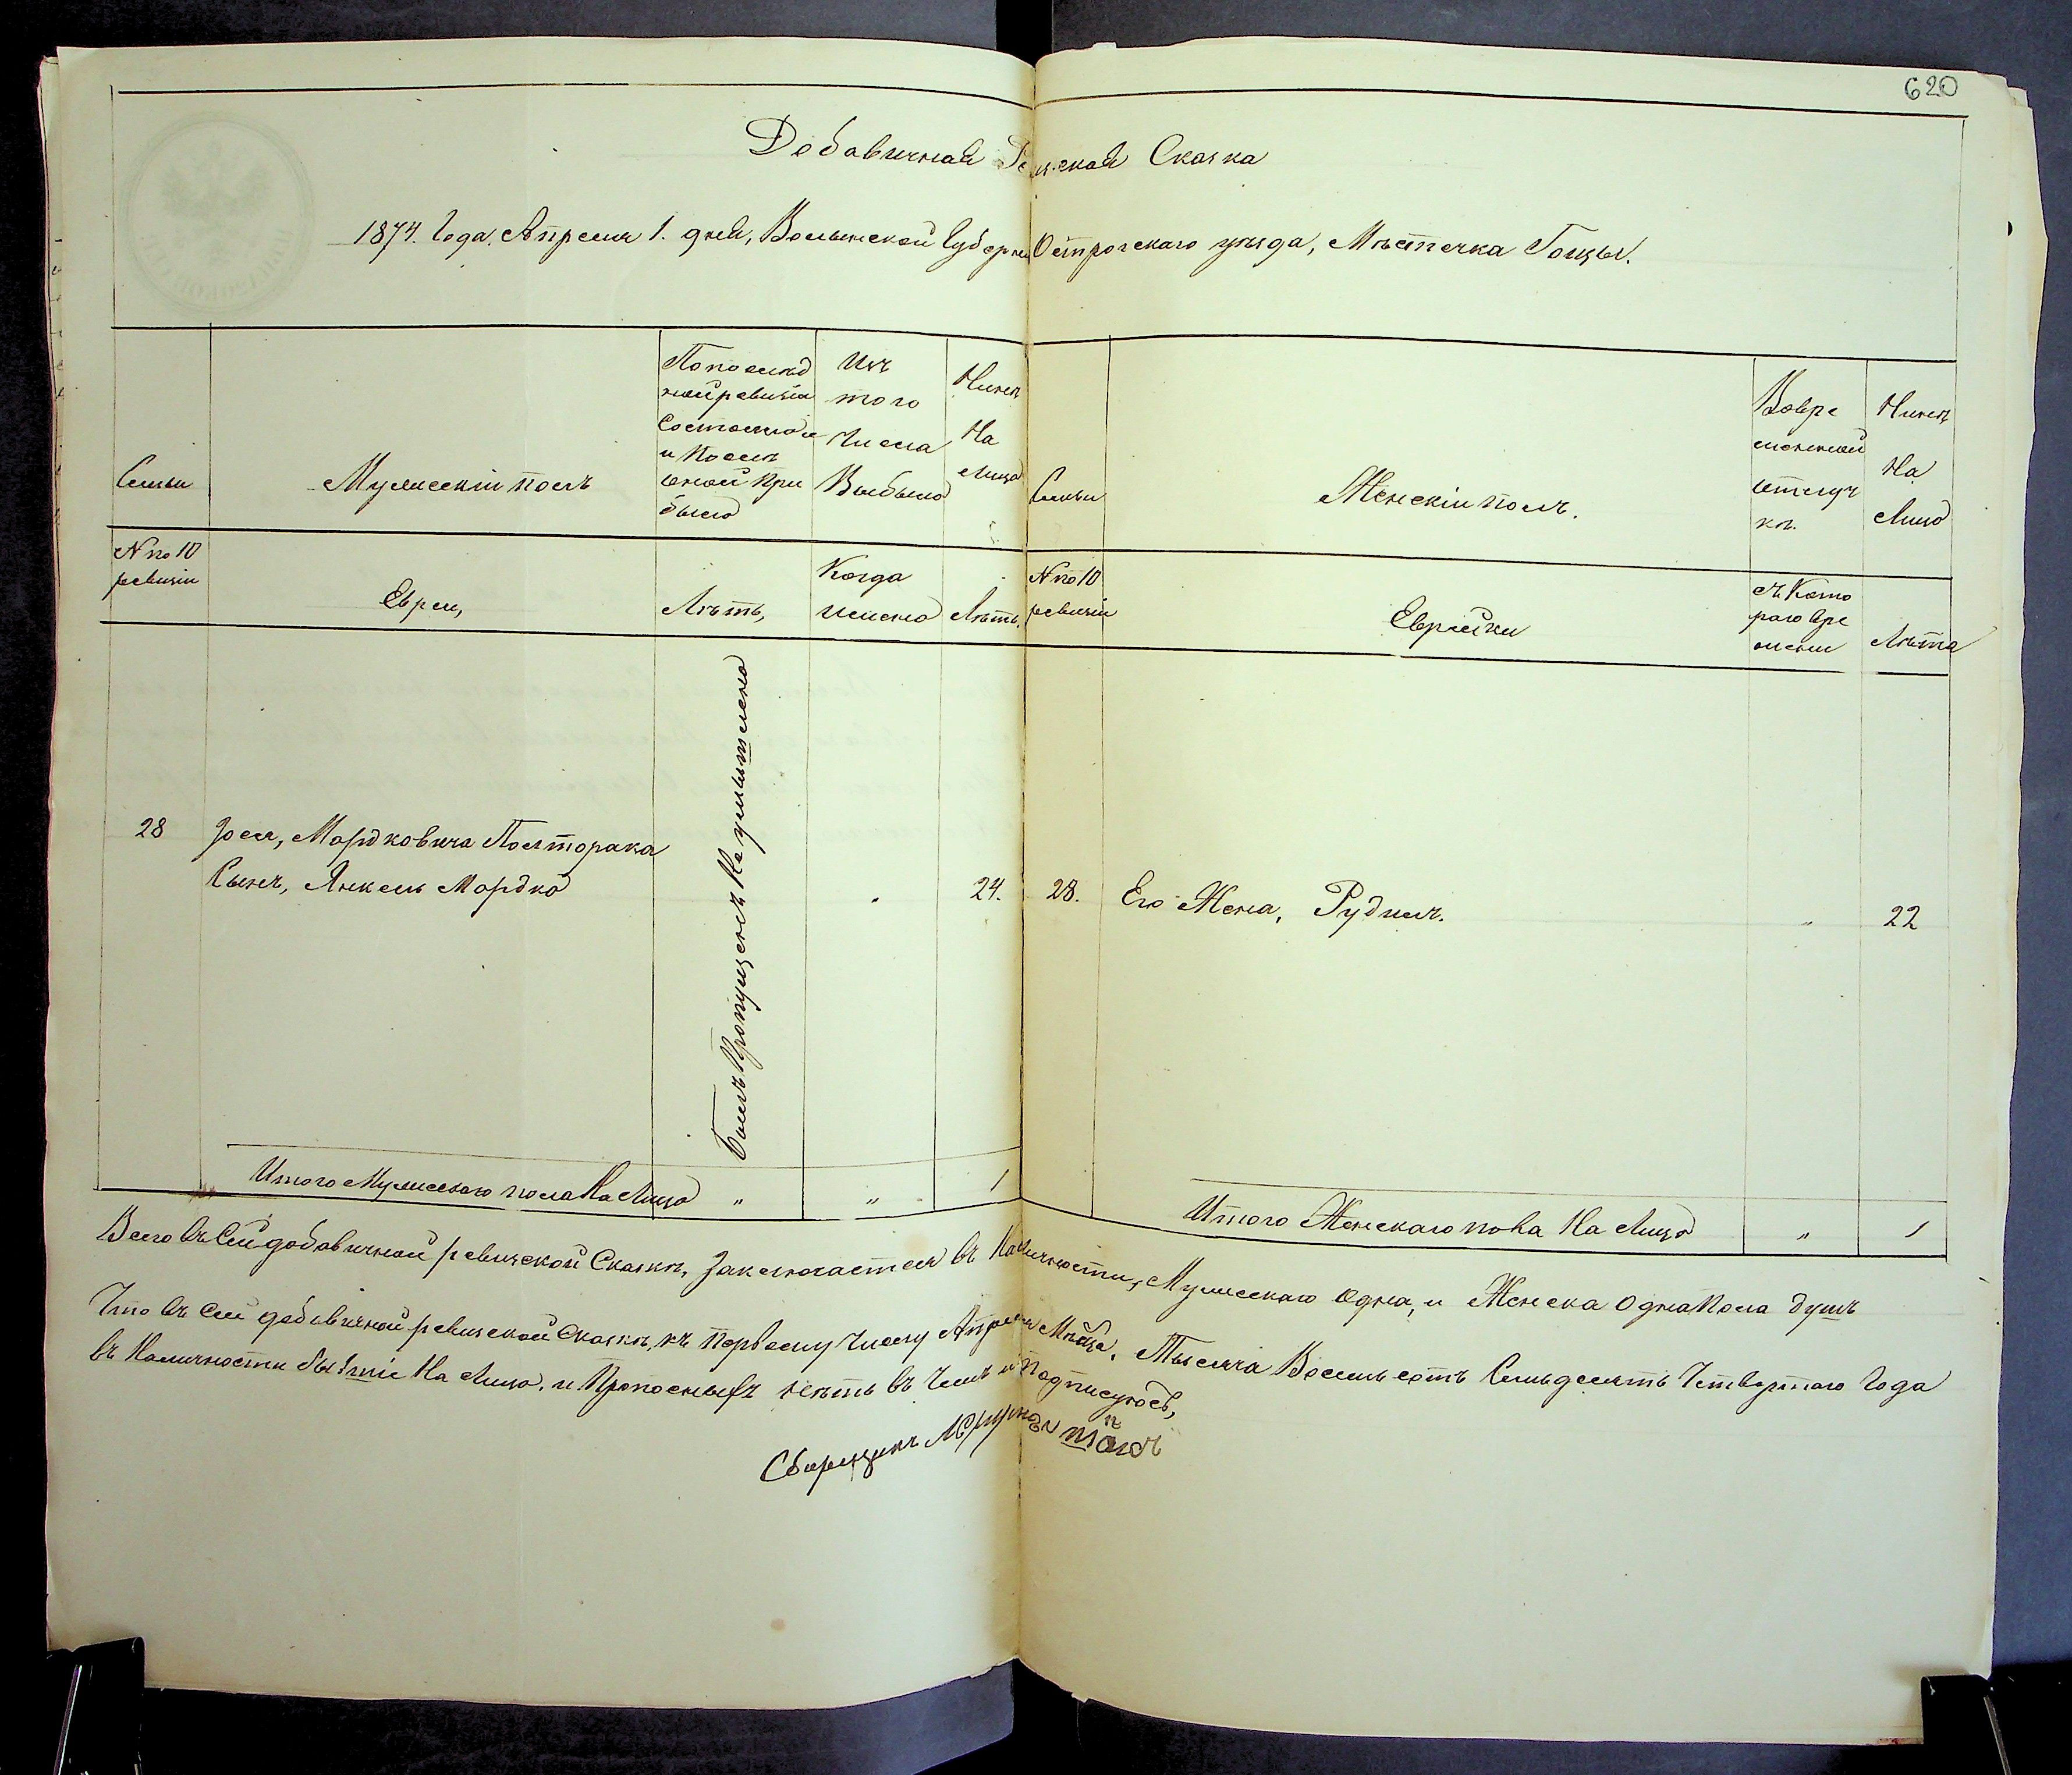 620
Добавичная Ревизская Сказка
1874. Года, Апреля 1. дня, Волынской Губерни Острогскаго уезда, Местечка Гощы.
Семьи
Мужескій полъ
По последней ревизіи Состояло и После оной прибыло
Изъ того Числа Выбыло
Ныне На Лицо
Семьи
Женскій полъ.
Во временной отлучке.
Ныне На Лицо
№ по 10 ревизіи
Евреи,
Летъ,
Когда имено
Летъ.
№ по 10 ревизіи
Еврейки
съ Которого времени
Лета
28 Іося, Мордковича Полторака
Сынъ, Янкель Мордко
Былъ Пропущенъ Не умышленно
" 24.
28. Его Жена, Рудиль. " 22
Итого Мужескаго пола На Лицо " " 1
Итого Женскаго пола На Лицо " 1
Всего въ Сей добавичной ревизской Сказке, Заключается въ Наличности, Мужескаго одна, и Женска одна Пола душъ
Что въ Сей добавичной ревизской Сказке, къ Первому Числу Апреля Мѣсца, Тысяча Восемьсотъ Семьдесятъ Четвертого Года
въ Наличности бытіе На Лицо, и Пропосныхъ нетъ въ Чемъ и Подписуюсъ,
Сборщикъ